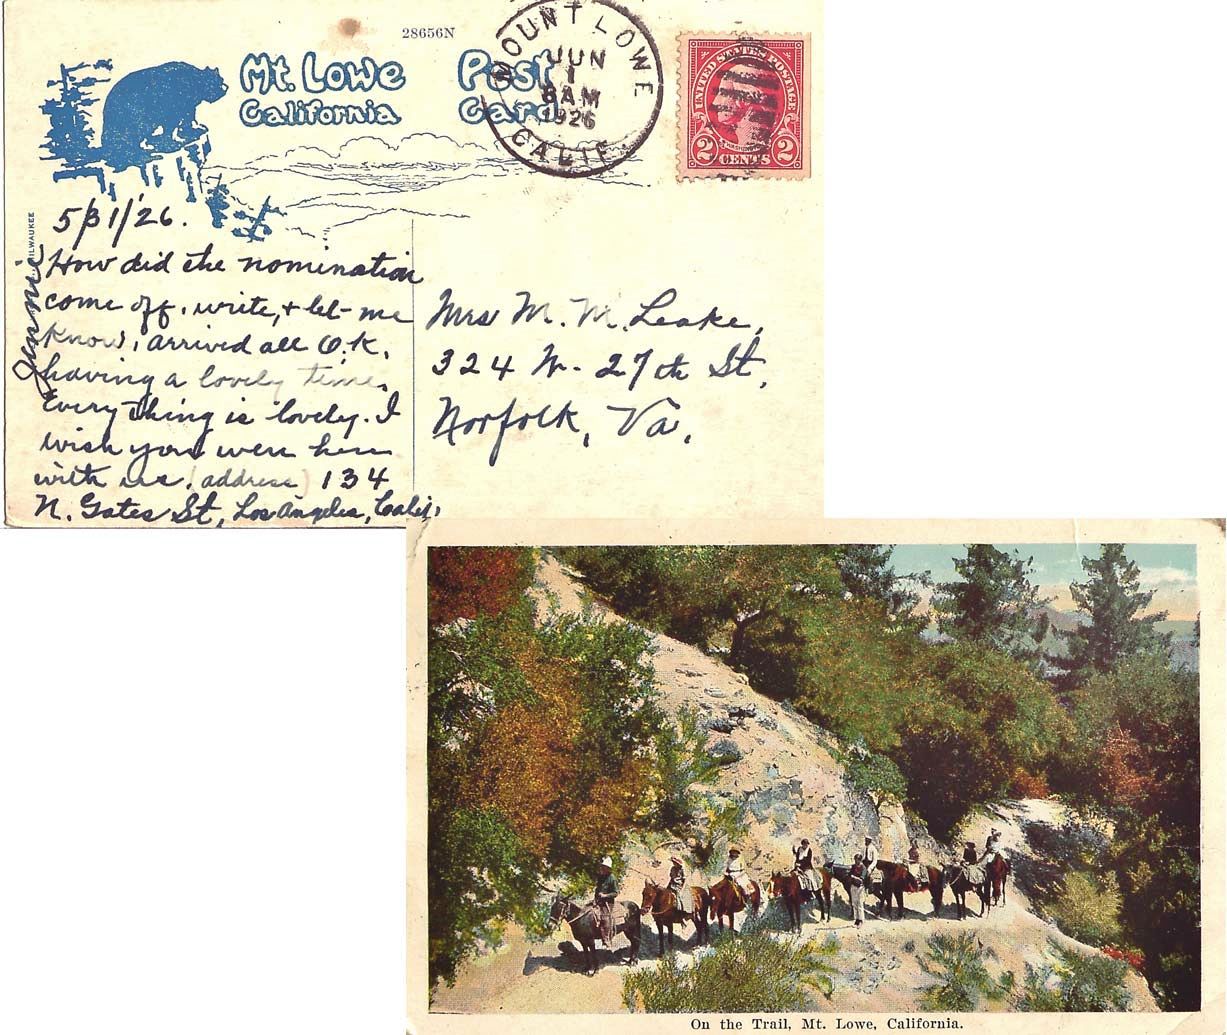 28656N
Mt. Lowe Post
California Card
MOUNT LOWE
JUN
1
8 AM
1926
CALIF.
UNITED STATES POSTAGE
2 CENTS 2
MILWAUKEE
5/31/'26.
How did the nomination
come off, write, + let me
know, arrived all O.K.
having a lovely time.
Every thing is lovely. I
wish you were here
with us. (address) 134
N. Gates St, Los Angeles, Calif.
Jennie
Mrs M. M. Leake,
324 W. 27th St,
Norfolk, Va,
On the Trail, Mt. Lowe, California.